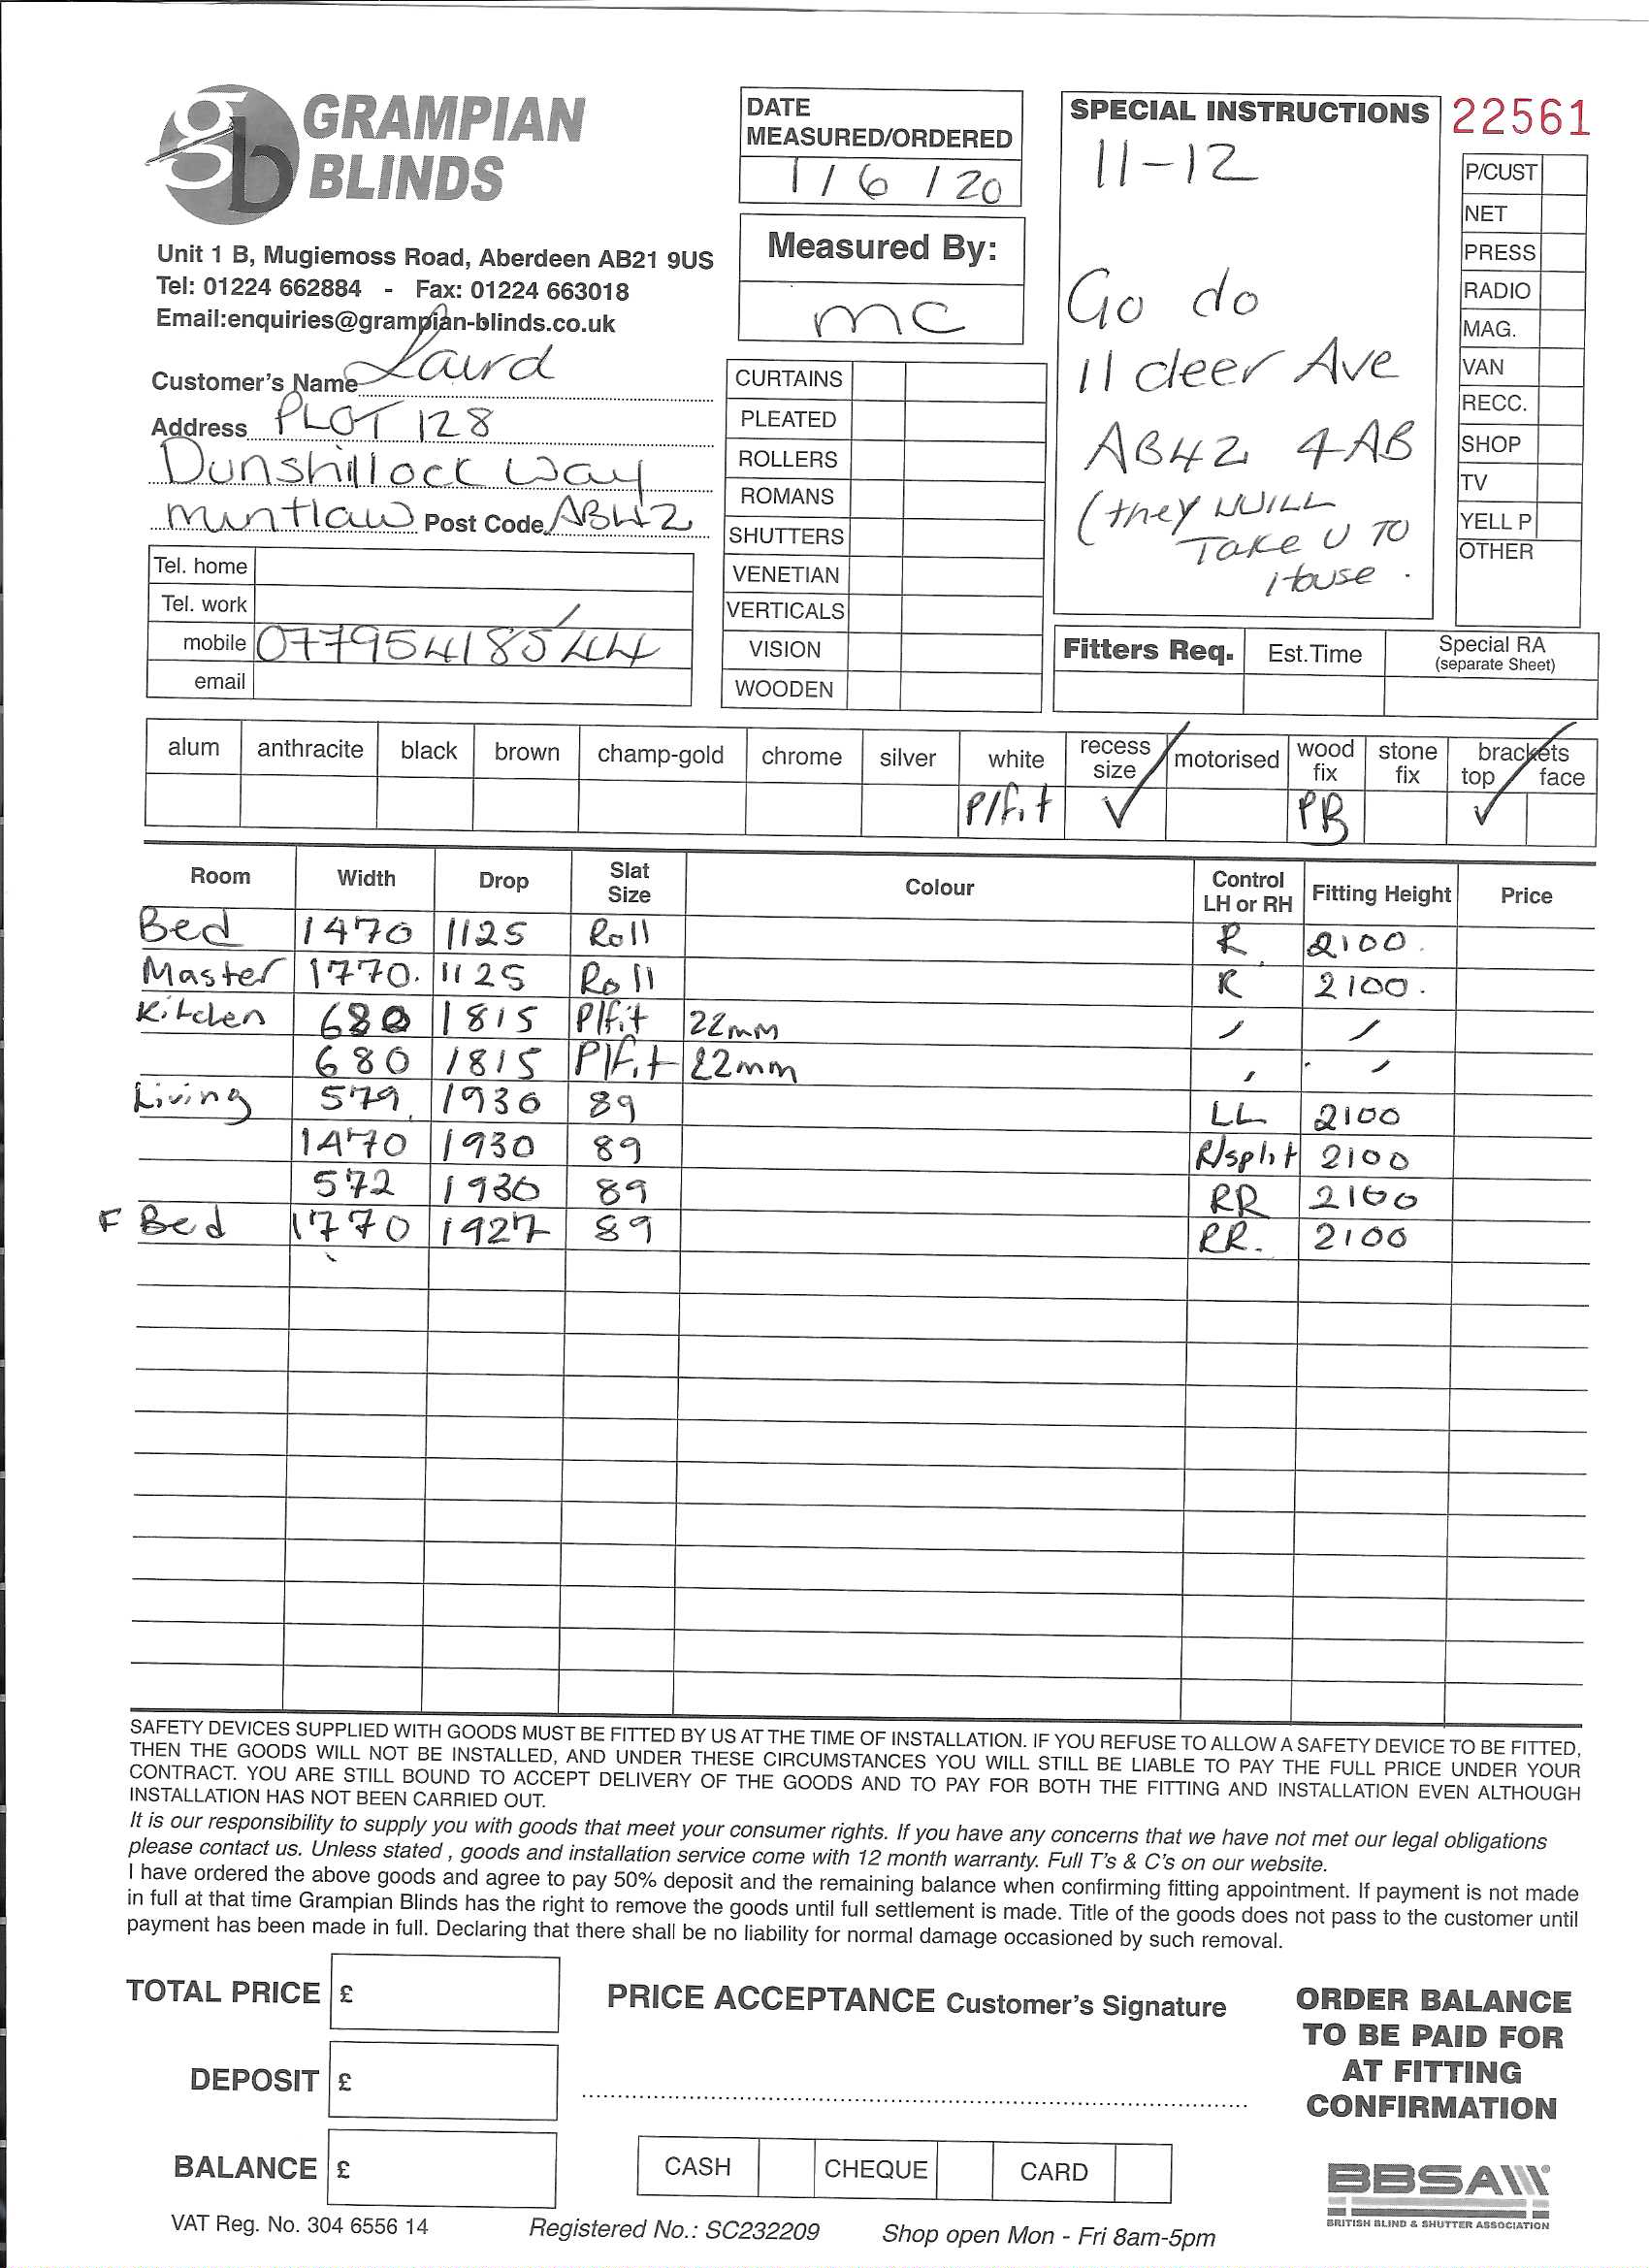 GRAMPIAN
BLINDS
Unit 1 B, Mugiemoss Road, Aberdeen AB21 9US
Tel: 01224 662884 - Fax: 01224 663018
Email:enquiries@grampian-blinds.co.uk
Customer's Name Laird
Address PLOT 128
Dunshillock Way
Mintlaw Post Code AB42
Tel. home
Tel. work
mobile 07795418544
email
DATE
MEASURED/ORDERED
1/6/20
Measured By:
MC
CURTAINS
PLEATED
ROLLERS
ROMANS
SHUTTERS
VENETIAN
VERTICALS
VISION
WOODEN
SPECIAL INSTRUCTIONS
11-12
Go do
11 deer Ave
AB42 4AB
(they WILL
Take U TO
House.
22561
P/CUST
NET
PRESS
RADIO
MAG.
VAN
RECC.
SHOP
TV
YELL P
OTHER
Fitters Req. Est.Time Special RA
(separate Sheet)
alum anthracite black brown champ-gold chrome silver white recess size motorised wood fix stone fix brackets top face
P/fit ✓ PB ✓
Room Width Drop Slat Size Colour Control LH or RH Fitting Height Price
Bed 1470 1125 Roll R 2100.
Master 1770. 1125 Roll R 2100.
Kitchen 680 1815 P/fit 22mm
680 1815 P/fit 22mm
Living 579 1930 89 LL 2100
1470 1930 89 R/split 2100
572 1930 89 RR 2100
F Bed 1770 1927 89 RR. 2100
SAFETY DEVICES SUPPLIED WITH GOODS MUST BE FITTED BY US AT THE TIME OF INSTALLATION. IF YOU REFUSE TO ALLOW A SAFETY DEVICE TO BE FITTED,
THEN THE GOODS WILL NOT BE INSTALLED, AND UNDER THESE CIRCUMSTANCES YOU WILL STILL BE LIABLE TO PAY THE FULL PRICE UNDER YOUR
CONTRACT. YOU ARE STILL BOUND TO ACCEPT DELIVERY OF THE GOODS AND TO PAY FOR BOTH THE FITTING AND INSTALLATION EVEN ALTHOUGH
INSTALLATION HAS NOT BEEN CARRIED OUT.
It is our responsibility to supply you with goods that meet your consumer rights. If you have any concerns that we have not met our legal obligations
please contact us. Unless stated , goods and installation service come with 12 month warranty. Full T's & C's on our website.
I have ordered the above goods and agree to pay 50% deposit and the remaining balance when confirming fitting appointment. If payment is not made
in full at that time Grampian Blinds has the right to remove the goods until full settlement is made. Title of the goods does not pass to the customer until
payment has been made in full. Declaring that there shall be no liability for normal damage occasioned by such removal.
TOTAL PRICE £
DEPOSIT £
BALANCE £
PRICE ACCEPTANCE Customer's Signature
CASH CHEQUE CARD
ORDER BALANCE
TO BE PAID FOR
AT FITTING
CONFIRMATION
BBSA
BRITISH BLIND & SHUTTER ASSOCIATION
VAT Reg. No. 304 6556 14 Registered No.: SC232209 Shop open Mon - Fri 8am-5pm